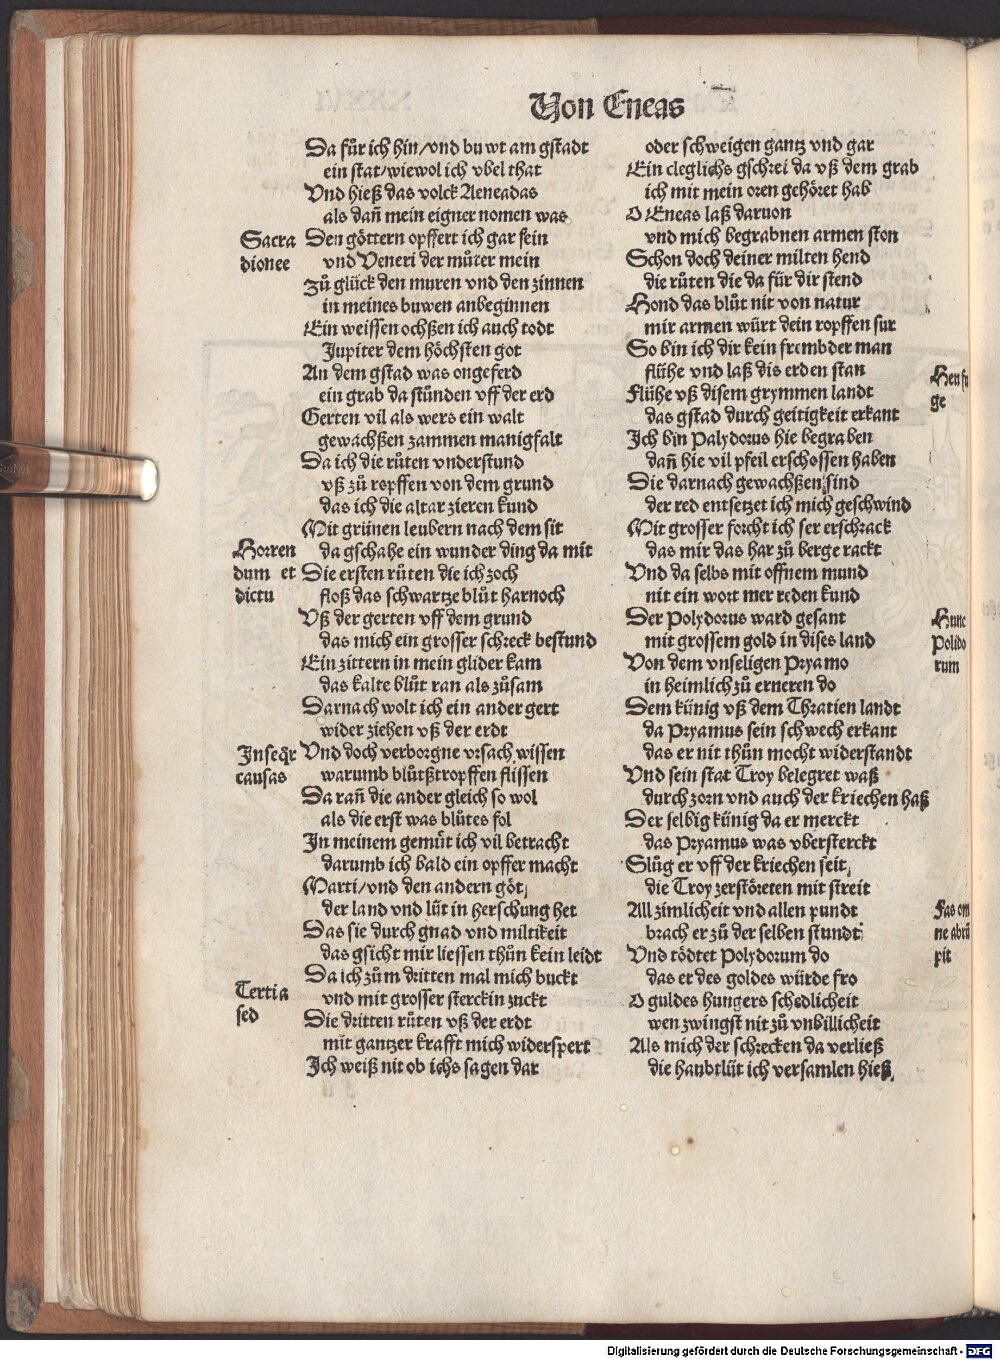 Von Eneas
Da für ich hin/vnd buwt am gstadt
ein stat/wiewol ich vbel that
Vnd hieß das volck Aeneadas
als dañ mein eigner nomen was
Sacra
dionee
Den göttern opffert ich gar fein
vnd Veneri der můter mein
Zů glück den muren vnd den zinnen
in meines buwen anbeginnen
Ein weissen ochßen ich auch todt
Jupiter dem höchsten got
An dem gstad was ongeferd
ein grab da stůnden vff der erd
Gerten vil als wers ein walt
gewachßen zammen manigfalt
Da ich die růten vnderstund
vß zů ropffen von dem grund
das ich die altar zieren kund
Mit grünen leubern nach dem sit
Horren
dum et
dictu
da gschahe ein wunder ding da mit
Die ersten růten die ich zoch
floß das schwartze blůt harnoch
Vß der gerten vff dem grund
das mich ein grosser schreck bestund
Ein zittern in mein glider kam
das kalte blůt ran als zůsam
Darnach wolt ich ein ander gert
wider ziehen vß der erdt
Inseqr
causas
Vnd doch verborgne vrsach wissen
warumb blůtßtropffen flissen
Da rañ die ander gleich so wol
als die erst was blůtes fol
In meinem gemüt ich vil betracht
darumb ich bald ein opffer macht
Marti/vnd den andern göt
der land vnd lüt in herschung het
Das sie durch gnad vnd miltikeit
das gsicht mir liessen thůn kein leidt
Tertia
sed
Da ich zům dritten mal mich buckt
vnd mit grosser sterckin zuckt
Die dritten růten vß der erdt
mit gantzer krafft mich widerspert
Ich weiß nit ob ichs sagen dar
oder schweigen gantz vnd gar
Ein cleglichs gschrei da vß dem grab
ich mit mein oren gehöret hab
O Eneas laß daruon
vnd mich begrabnen armen ston
Schon doch deiner milten hend
die růten die da für dir stend
Hond das blůt nit von natur
mir armen würt dein ropffen sur
So bin ich dir kein frembder man
flühe vnd laß dis erden stan
Heu fu
ge
Flühe vß disem grymmen landt
das gstad durch geitigkeit erkant
Ich bin Palydorus hie begraben
dañ hie vil pfeil erschossen haben
Die darnach gewachßen sind
der red entsetzet ich mich geschwind
Mit grosser forcht ich ser erschrack
das mir das har zů berge rackt
Vnd da selbs mit offnem mund
nit ein wort mer reden kund
Hunc
Polido
rum
Der Polydorus ward gesant
mit grossem gold in dises land
Von dem vnseligen Pryamo
in heimlich zů erneren do
Dem künig vß dem Thratien landt
da Pryamus sein schwech erkant
das er nit thůn mocht widerstandt
Vnd sein stat Troy belegret waß
durch zorn vnd auch der kriechen haß
Der selbig künig da er merckt
das Pryamus was vbersterckt
Slůg er vff der kriechen seit
die Troy zerstöreten mit streit
Fas om
ne abrũ
pit
All zimlicheit vnd allen pundt
brach er zů der selben stundt
Vnd tödtet Polydorum do
das er des goldes würde fro
O guldes hungers schedlicheit
wen zwingst nit zů vnbillicheit
Als mich der schrecken da verließ
die haubtlüt ich versamlen hieß
Digitalisierung gefördert durch die Deutsche Forschungsgemeinschaft - DFG